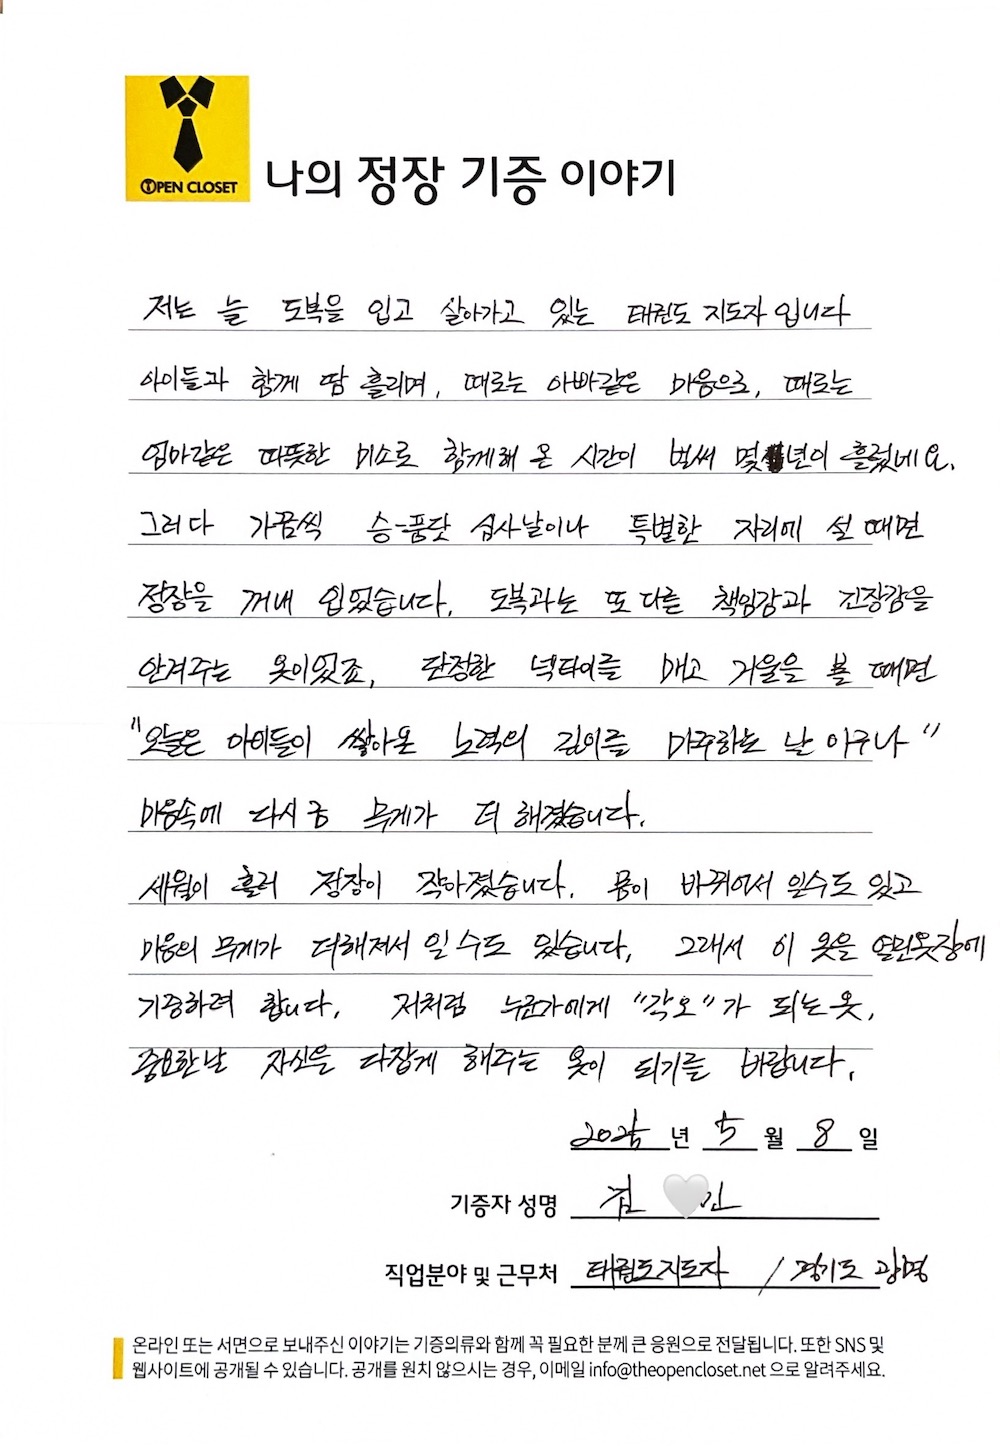 OPEN CLOSET
나의 정장 기증 이야기
저는 늘 도복을 입고 살아가고 있는 태권도 지도자 입니다
아이들과 함께 땀 흘리며, 때로는 아빠같은 마음으로, 때로는
엄마같은 따뜻한 미소로 함께해 온 시간이 벌써 몇 년이 흘렀네요.
그러다 가끔씩 승-품단 심사날이나 특별한 자리에 설 때면
정장을 꺼내 입었습니다. 도복과는 또 다른 책임감과 긴장감을
안겨주는 옷이었죠, 단정한 넥타이를 매고 거울을 볼 때면
"오늘은 아이들이 쌓아온 노력의 깊이를 마주하는 날 이구나"
마음속에 다시금 무게가 더 해졌습니다.
세월이 흘러 정장이 작아졌습니다. 몸이 바뀌어서 일수도 있고
마음의 무게가 더해져서 일 수도 있습니다. 그래서 이 옷을 열린옷장에
기증하려 합니다. 저처럼 누군가에게 "각오"가 되는 옷,
중요한날 자신을 다잡게 해주는 옷이 되기를 바랍니다.
2025 년 5 월 8 일
기증자 성명 김 인
직업분야 및 근무처 태권도지도자 / 경기도 광명
온라인 또는 서면으로 보내주신 이야기는 기증의류와 함께 꼭 필요한 분께 큰 응원으로 전달됩니다. 또한 SNS 및
웹사이트에 공개될 수 있습니다. 공개를 원치 않으시는 경우, 이메일 info@theopencloset.net 으로 알려주세요.